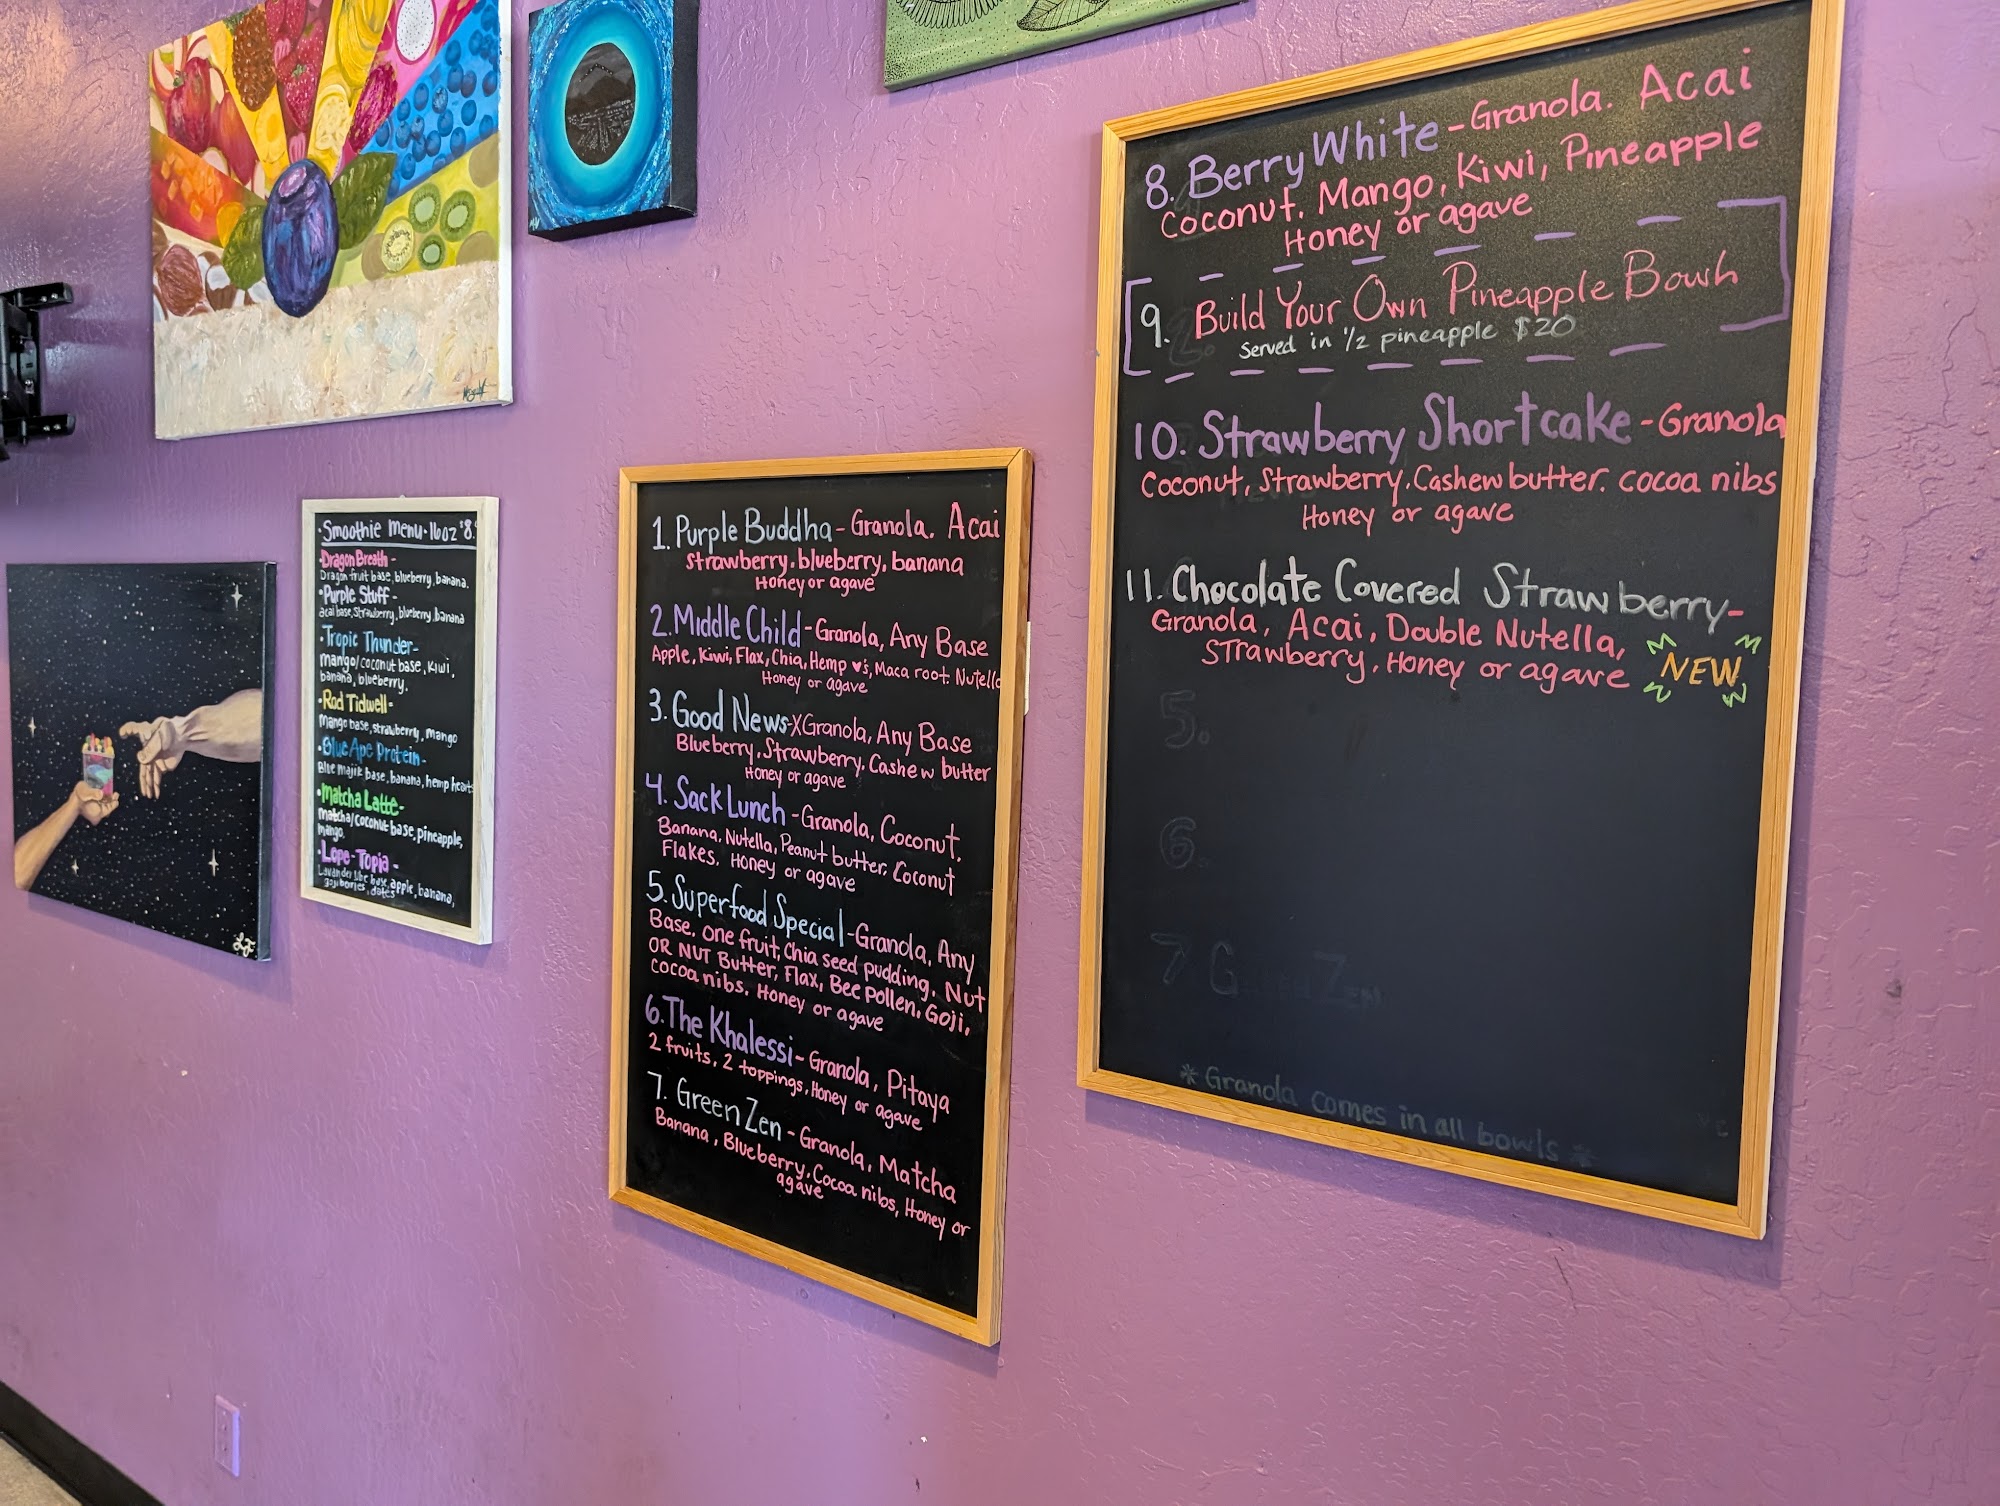 •Smoothie Menu•16oz $8.
•Dragon Breath-
Dragon fruit base, blueberry, banana.
•Purple Stuff-
acai base, Strawberry, blueberry, banana
•Tropic Thunder-
mango/coconut base, Kiwi,
banana, blueberry,
•Rod Tidwell-
Mango base, strawberry, mango
•Blue Ape Protein-
Blue majik base, banana, hemp heart
•Matcha Latte-
Matcha/coconut base, pineapple,
mango,
•Lope-Topia-
Lavander base, apple, banana,
goji berries, dates
L.F
1. Purple Buddha - Granola. Acai
Strawberry. blueberry, banana
Honey or agave
2. Middle Child - Granola, Any Base
Apple, Kiwi, Flax, Chia, Hemp ♥'s, Maca root. Nutella
Honey or agave
3. Good News - XGranola, Any Base
Blueberry, Strawberry, Cashew butter
Honey or agave
4. Sack Lunch - Granola, Coconut,
Banana, Nutella, Peanut butter, Coconut
Flakes, Honey or agave
5. Superfood Special - Granola, Any
Base. one fruit, Chia seed pudding, Nut
OR NUT Butter, Flax, Bee pollen, Goji,
cocoa nibs, Honey or agave
6. The Khalessi - Granola, Pitaya
2 fruits, 2 toppings, Honey or agave
7. Green Zen - Granola, Matcha
Banana, Blueberry, Cocoa nibs, Honey or
agave
8. Berry White - Granola. Acai
Coconut. Mango, Kiwi, Pineapple
Honey or agave
9. Build Your Own Pineapple Bowh
served in 1/2 pineapple $20
10. Strawberry Shortcake - Granola
Coconut, Strawberry, Cashew butter. cocoa nibs
Honey or agave
11. Chocolate Covered Strawberry-
Granola, Acai, Double Nutella,
Strawberry, Honey or agave NEW
5.
6.
7 Green Zen
* Granola comes in all bowls *